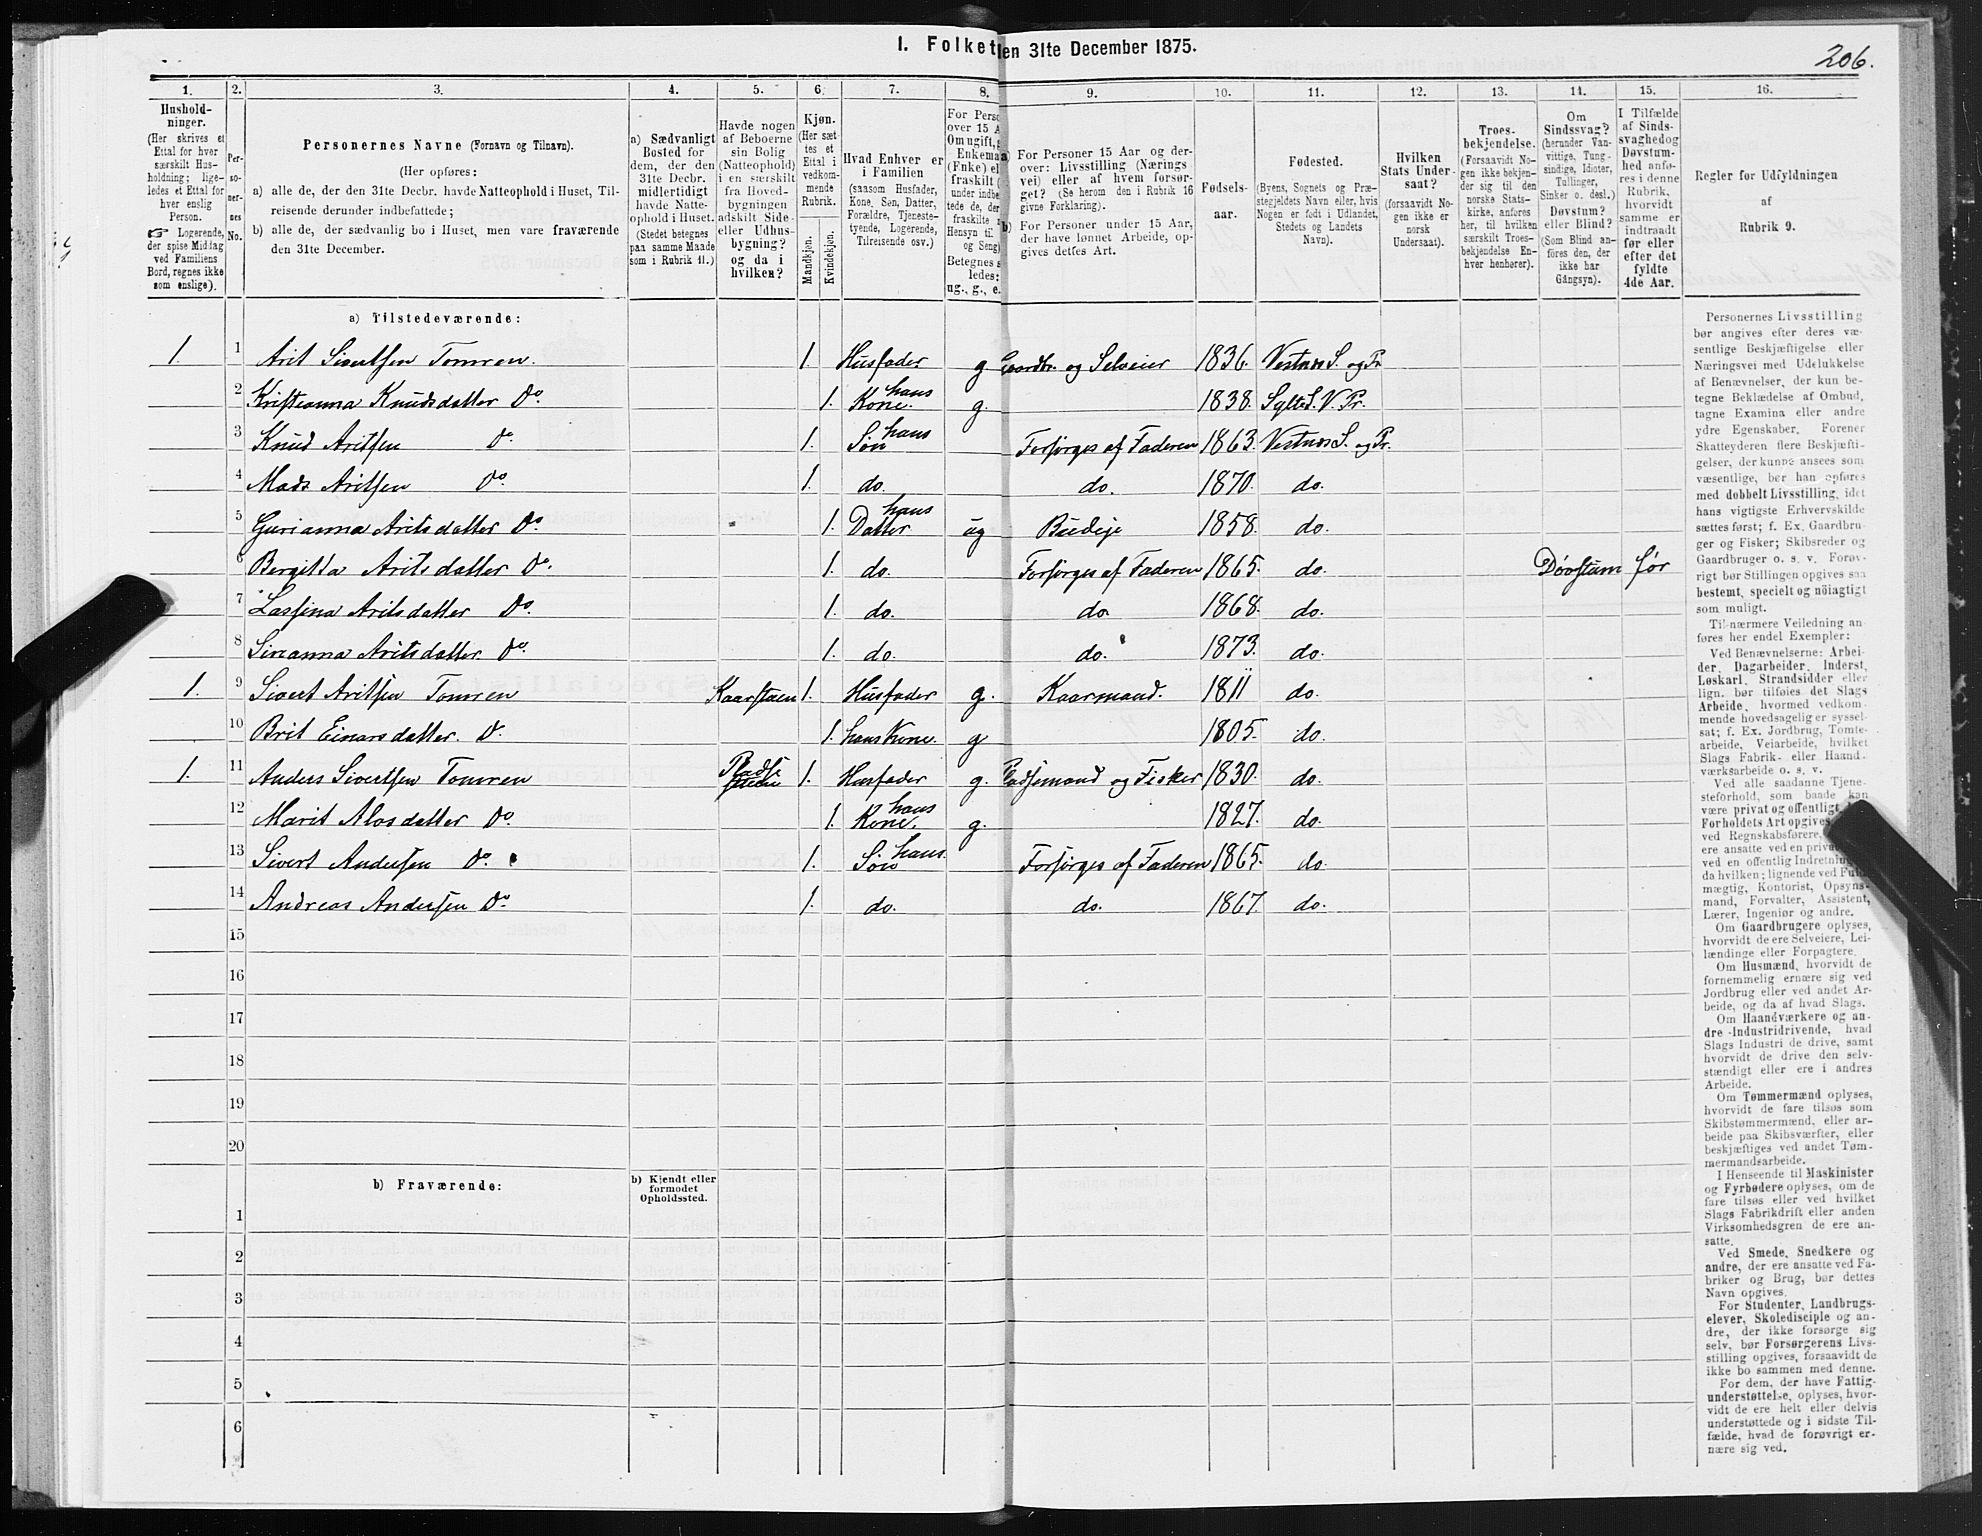 I. Folket en 31te December 1875.
206.
1. 2. 3. 4. 5. 6. 7. 8. 9. 10. 11. 12. 13. 14. 15. 16.
Hushold-
ninger.
(Her skrives et
Ettal for hver
særskilt Hus-
holdning; lige-
ledes et Ettal for
hver enslig
Person.
☞ Logerende,
der spise Middag
ved Familiens
Bord, regnes ikke
som enslige).
Per-
so-
ner-
nes
No.
Personernes Navne (Fornavn og Tilnavn).
(Her opføres:
a) alle de, der den 31te Decbr. havde Natteophold i Huset, Til-
reisende derunder indbefattede;
b) alle de, der sædvanlig bo i Huset, men vare fraværende
den 31te December.
a) Sædvanligt
Bosted for
dem, der den
31te Decbr.
midlertidigt
havde Natte-
ophold i Huset.
(Stedet betegnes
paa samme Maade
som i Rubrik 11.)
Havde nogen
af Beboerne
sin Bolig
(Natteophold)
i en særskilt
fra Hoved-
bygningen
adskilt Side-
eller Udhus-
bygning?
og da i
hvilken?
Kjøn.
(Her sæt-
tes et
Ettal i
vedkom-
mende
Rubrik.
Mandkjøn.
Kvindekjøn.
Hvad Enhver er
i Familien
(saasom Husfader,
Kone, Søn, Datter,
Forældre, Tjeneste-
tyende, Logerende,
Tilreisende osv.)
For Perso
over 15 A
Om ugift, g
Enkema
(Enke) el
fraskilt (
under indbe
tede de, der
fraskilte
Hensyn til
og Seng)
Betegnes s
ledes:
ug., g., e.
a) For Personer 15 Aar og der-
over: Livsstilling (Nærings
vei) eller af hvem forsør-
get? (Se herom den i Rubrik 16
givne Forklaring).
b) For Personer under 15 Aar,
der have lønnet Arbeide, op-
gives detfses Art.
Fødsels-
aar.
Fødested.
(Byens, Sognets og Præ-
stegjeldets Navn eller, hvis
Nogen er født i Udlandet,
Stedets og Landets
Navn).
Hvilken
Stats Under-
saat?
(forsaavidt No-
gen ikke er
norsk
Undersaat).
Troes-
bekjendelse.
(Forsaavidt No-
gen ikke bekjen-
der sig til den
norske Stats-
kirke, anføres
her, til hvilken
særskilt Troes-
bekjendelse En-
hver henhører).
Om
Sindssvag?
(herunder Van-
vittige, Tung-
sindige, Idioter,
Tullinger,
Sinker o. desl.)
Døvstum?
eller Blind?
(Som Blind an-
føres den, der
ikke har
Gangsyn).
I Tilfælde
af Sinds-
svaghed og
Døvstum-
hed anfø-
res i denne
Rubrik,
hvorvidt
samme er
indtraadt
før eller
efter det
fyldte
4de Aar.
Regler for Udfyldningen
af
Rubrik 9.
a) Tilstedeværende:
1. 1 Arit Sivertsen Tomren. 1. Husfader g Gaardbr. og Selveier 1836. Vestnes S. og Pr
2 Kristianna Knudsdatter Do. 1. hans Kone. g. 1838. Sylte S. V. Pr.
3 Knud Aritsen Do. 1. hans Søn Forsørges af Faderen 1863. Vestnes S. og Pr.
4 Mads Aritsen Do. 1. do. do. 1870. do.
5 Gurianna Aritsdatter Do. 1. hans Datter ug Budeje 1858. do.
6 Bergitta Aritsdatter Do. 1. do. Forsørges af Faderen 1865. do. Døvstum før
7 Lassina Aritsdatter Do. 1. do. do. 1868. do.
8 Sinanna Aritsdatter. Do. 1. do. do. 1873. do.
1. 9 Sivert Aritsen Tomren Kaarstuen 1. Husfader g. Kaarmand. 1811 do.
10 Brit Einarsdatter. Do. 1. hans Kone. g 1805. do.
1. 11 Anders Sivertsen Tomren Pladsstuen 1. Husfader g. Pladsemand og Fisker 1830. do.
12 Marit Alosdatter Do. 1. hans Kone. g. 1827. do.
13 Sivert Andersen Do. 1. hans. Søn Forsørges af Faderen 1865. do
14 Andreas Andersen Do. 1. do. do. 1867. do.
15
16
17
18
19
20
b) Fraværende:
b) Kjendt eller
formodet
Opholdssted.
1
2
3
4
5
6
Personernes Livsstilling
bør angives efter deres væ-
sentlige Beskjæftigelse eller
Næringsvei med Udelukkelse
af Benævnelser, der kun be-
tegne Beklædelse af Ombud,
tagne Examina eller andre
ydre Egenskaber. Forener
Skatteyderen flere Beskjæfti-
gelser, der kunne ansees som
væsentlige, bør han opføres
med dobbelt Livsstilling, idet
hans vigtigste Erhvervskilde
sættes først; f. Ex. Gaardbru-
ger og Fisker; Skibsreder og
Gaardbruger o. s. v. Forøv-
rigt bør Stillingen opgives saa
bestemt, specielt og nöiagtigt
som muligt.
Til nærmere Veiledning an-
føres her endel Exempler:
Ved Benævnelserne: Arbei-
der, Dagarbeider, Inderst,
Løskarl, Strandsidder eller
lign. bør tilføies det Slags
Arbeide, hvormed vedkom-
mende hovedsagelig er syssel-
sat; f. Ex. Jordbrug, Tomte-
arbeide, Veiarbeide, hvilket
Slags Fabrik- eller Haand-
værksarbeide o. s. v.
Ved alle saadanne Tjene-
steforhold, som baade kan
være privat og offentligt,
Forholdets Art opgives
ved Regnskabsførere,
ere ansatte ved en priva
ved en offentlig Indretnin
da hvilken; lignende ved Fuld
mægtig, Kontorist, Opsyns-
mand, Forvalter, Assistent,
Lærer, Ingeniør og andre.
Om Gaardbrugere oplyses,
hvorvidt de ere Selveiere, Lei-
lændinge eller Forpagtere.
Om Husmænd, hvorvidt de
fornemmelig ernære sig ved
Jordbrug eller ved andet Ar-
beide, og da af hvad Slags.
Om Haandværkere og an-
dre Industridrivende, hvad
Slags Industri de drive, samt
hvorvidt de drive den selv-
stændigt eller ere i andres
Arbeide.
Om Tømmermænd oplyses,
hvorvidt de fare tilsøs som
Skibstømmermænd, eller ar-
beide paa Skibsværfter, eller
beskjæftiges ved andet Tøm-
mermandsarbeide.
I Henseende til Maskinister
og Fyrbødere oplyses, om de
fare tilsøs eller ved hvilket
Slags Fabrikdrift eller anden
Virksomhedsgren de ere an-
satte.
Ved Smede, Snedkere og
andre, der ere ansatte ved Fa-
briker og Brug, bør dettes
Navn opgives.
For Studenter, Landbrugs-
elever, Skoledisciple og an-
dre, der ikke forsørge sig
selv, bør Forsørgerens Livs-
stilling opgives, forsaavidt de
ikke bo sammen med denne.
For dem, der have Fattig-
understøttelse, oplyses, hvor-
vidt de ere helt eller delvis
understøttede og i sidste Til-
fælde, hvad de forøvrigt er-
nære sig ved.